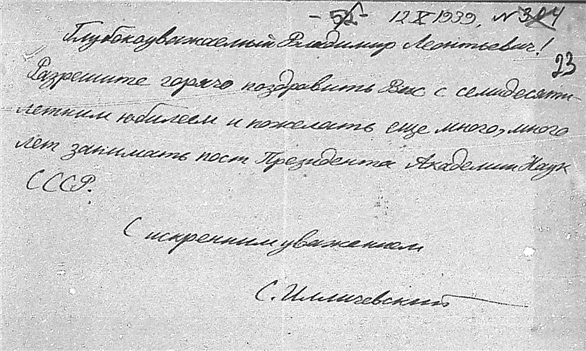 - 52 - 12 X 1939, N 304
Глубокоуважаемый Владимир Леонтьевич!
23
Разрешите горячо поздравить Вас с семидесяти-
летним юбилеем и пожелать еще много, много
лет занимать пост Президента Академии Наук
СССР.
С искренним уважением
С. Илличевский